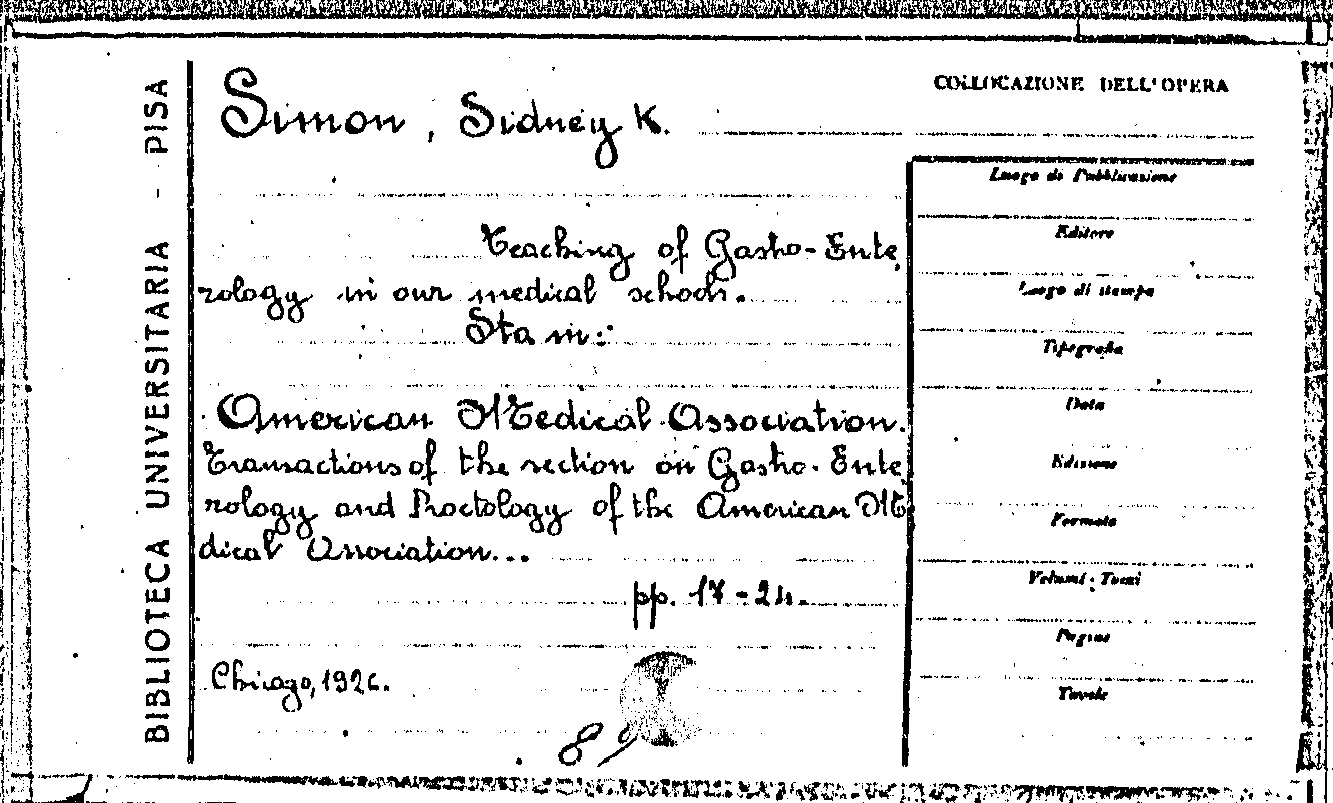 BIBLIOTECA UNIVERSITARIA - PISA
Simon, Sidney K.
Teaching of Gastro-Ente
rology in our medical schools.
Sta in:
American Medical Association.
Transactions of the section on Gastro-Ente
rology and Proctology of the American Me
dical Association...
pp. 17-24.
Chicago, 1926.
8°
COLLOCAZIONE DELL'OPERA
Luogo di Pubblicazione
Editore
Luogo di stampa
Tipografia
Data
Edizione
Formato
Volumi - Tomi
Pagine
Tavole